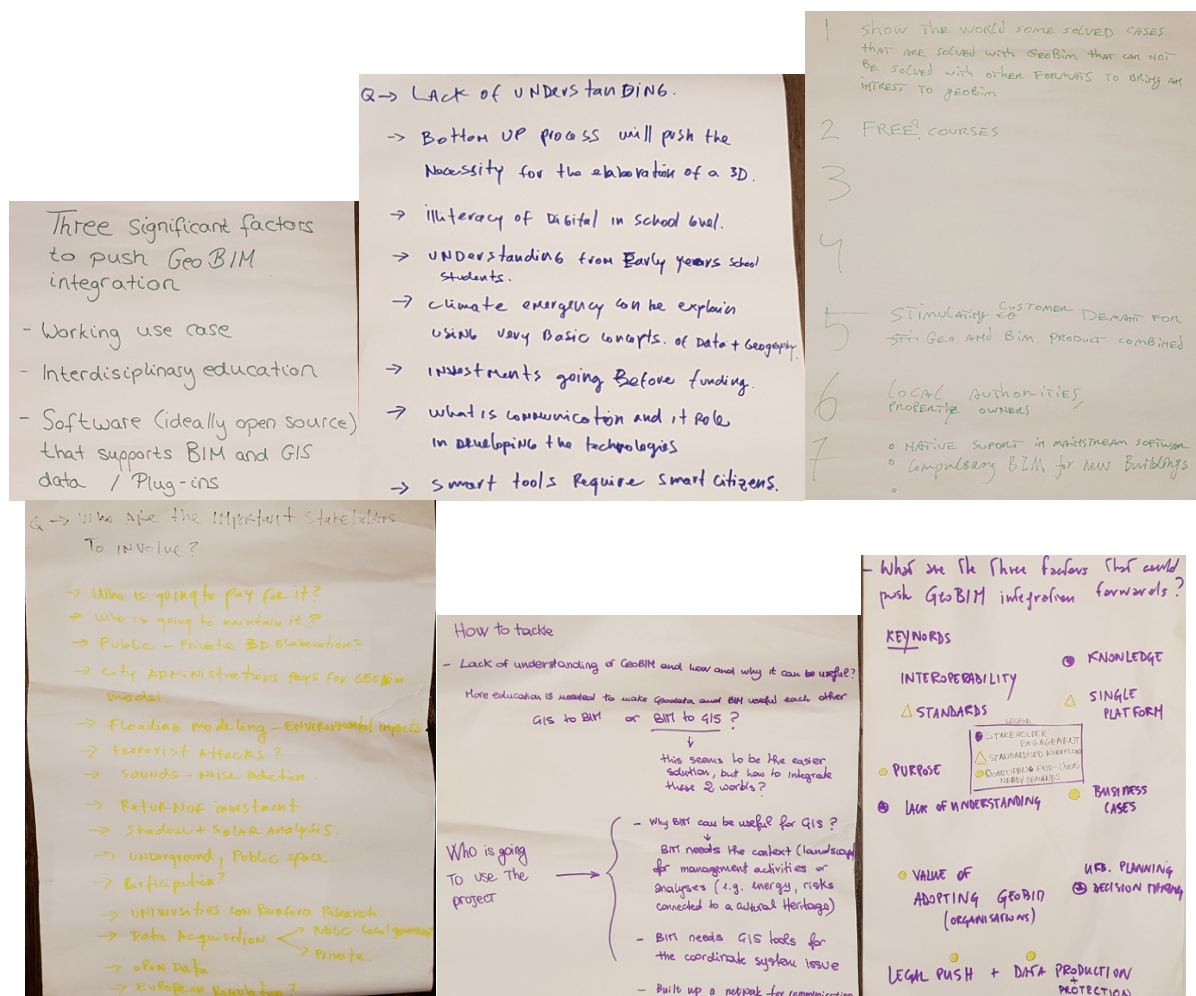 Three significant factors
to push GeoBIM
integration
- Working use case
- Interdisciplinary education
- Software (ideally open source)
that supports BIM and GIS
data / Plug-ins
Q → LACK of UNDERSTANDING.
→ Bottom UP process will push the
Necessity for the elaboration of a 3D.
→ illiteracy of Digital in School level.
→ UNDERSTANDING from Early years school
students.
→ climate emergency can be explain
using very Basic concepts. of Data + Geography
→ INVESTMENTS going Before funding.
→ what is communication and it Role
in Developing the technologies
→ Smart tools Require Smart citizens.
1 SHOW THE WORLD SOME SOLVED CASES
THAT ARE SOLVED WITH GEOBIM THAT CAN NOT
BE SOLVED WITH OTHER FORMATS TO BRING AN
INTREST TO GEOBIM
2 FREE? COURSES
3
4
5 STIMULATING CUSTOMER DEMANT FOR
GEO AND BIM PRODUCT COMBINED
6 LOCAL AUTHORITIES,
PROPERTIE OWNERS
7 • NATIVE SUPORT IN MAINSTREAM SOFTWAR
• Compulsary BIM for new Buildings
•
Q → Who are the Important Stakeholders
To INVOLVE?
→ Who is going to pay for it?
→ Who is going to maintain it?
→ Public - Private 3D Elaboration?
→ City ADMINISTRATIONS pays for GEOBIM
model.
→ Flooding modeling - ENVIRONMENTAL impacts
→ terrorist Attacks?
→ SOUNDS - Noise
→ Return of investment
→ Shadow + SOLAR Analysis.
→ UNDERGROUND, Public space.
→ Participation?
→ UNIVERSITIES can Reinforce Research
→ Data Acquisition → Public - Local government
→ Private
→ OPEN Data
→ EUROPEAN Regulation?
How to tackle
- Lack of understanding of GEOBIM and how and why it can be useful?
More education is needed to make Geodata and BIM useful each other
GIS to BIM or BIM to GIS ?
↓
this seems to be the easier
solution, but how to integrate
these 2 worlds?
Who is going
To use The
project →
- Why BIM can be useful for GIS ?
↓
BIM needs the context (landscap
for management activities or
analyses (e.g. energy, risks
connected to a cultural Heritage)
- BIM needs GIS tools for
the coordinate system issue
- Built up a network for communication
- What are the Three factors That could
push GEOBIM integration forwards ?
KEYWORDS
INTEROPERABILITY
KNOWLEDGE
STANDARDS
SINGLE
PLATFORM
LEGEND
STAKEHOLDER
ENGAGEMENT
STANDARDISED WORKFLOW
QUANTIFYING END-USERS
NEED/DEMANDS
PURPOSE
LACK OF UNDERSTANDING
BUSINESS
CASES
VALUE OF
ADOPTING GEOBIM
(ORGANISATIONS)
URB. PLANNING
DECISION MAKING
LEGAL PUSH + DATA PRODUCTION
+
PROTECTION